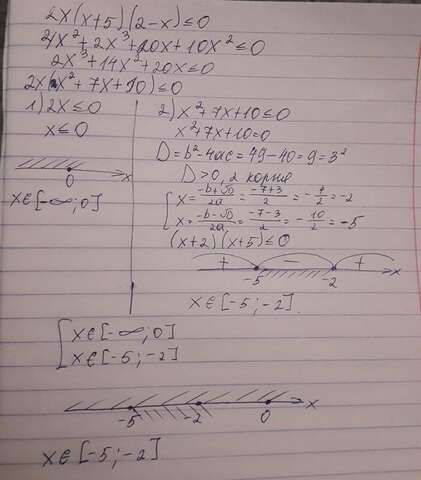 2x(x+5)(2-x)≤0
4x²+2x³+20x+10x²≤0
2x³+14x²+20x≤0
2x(x²+7x+10)≤0
1) 2x≤0
x≤0
0 x
x∈[-∞;0]
2) x²+7x+10≤0
x²+7x+10=0
D=b²-4ac=49-40=9=3²
D>0, 2 корня
x=(-b+√D)/2a=(-7+3)/2=-7/2=-2
x=(-b-√D)/2a=(-7-3)/2=-10/2=-5
(x+2)(x+5)≤0
+ - +
-5 -2 x
x∈[-5;-2].
x∈[-∞;0]
x∈[-5;-2]
-5 -2 0 x
x∈[-5;-2]